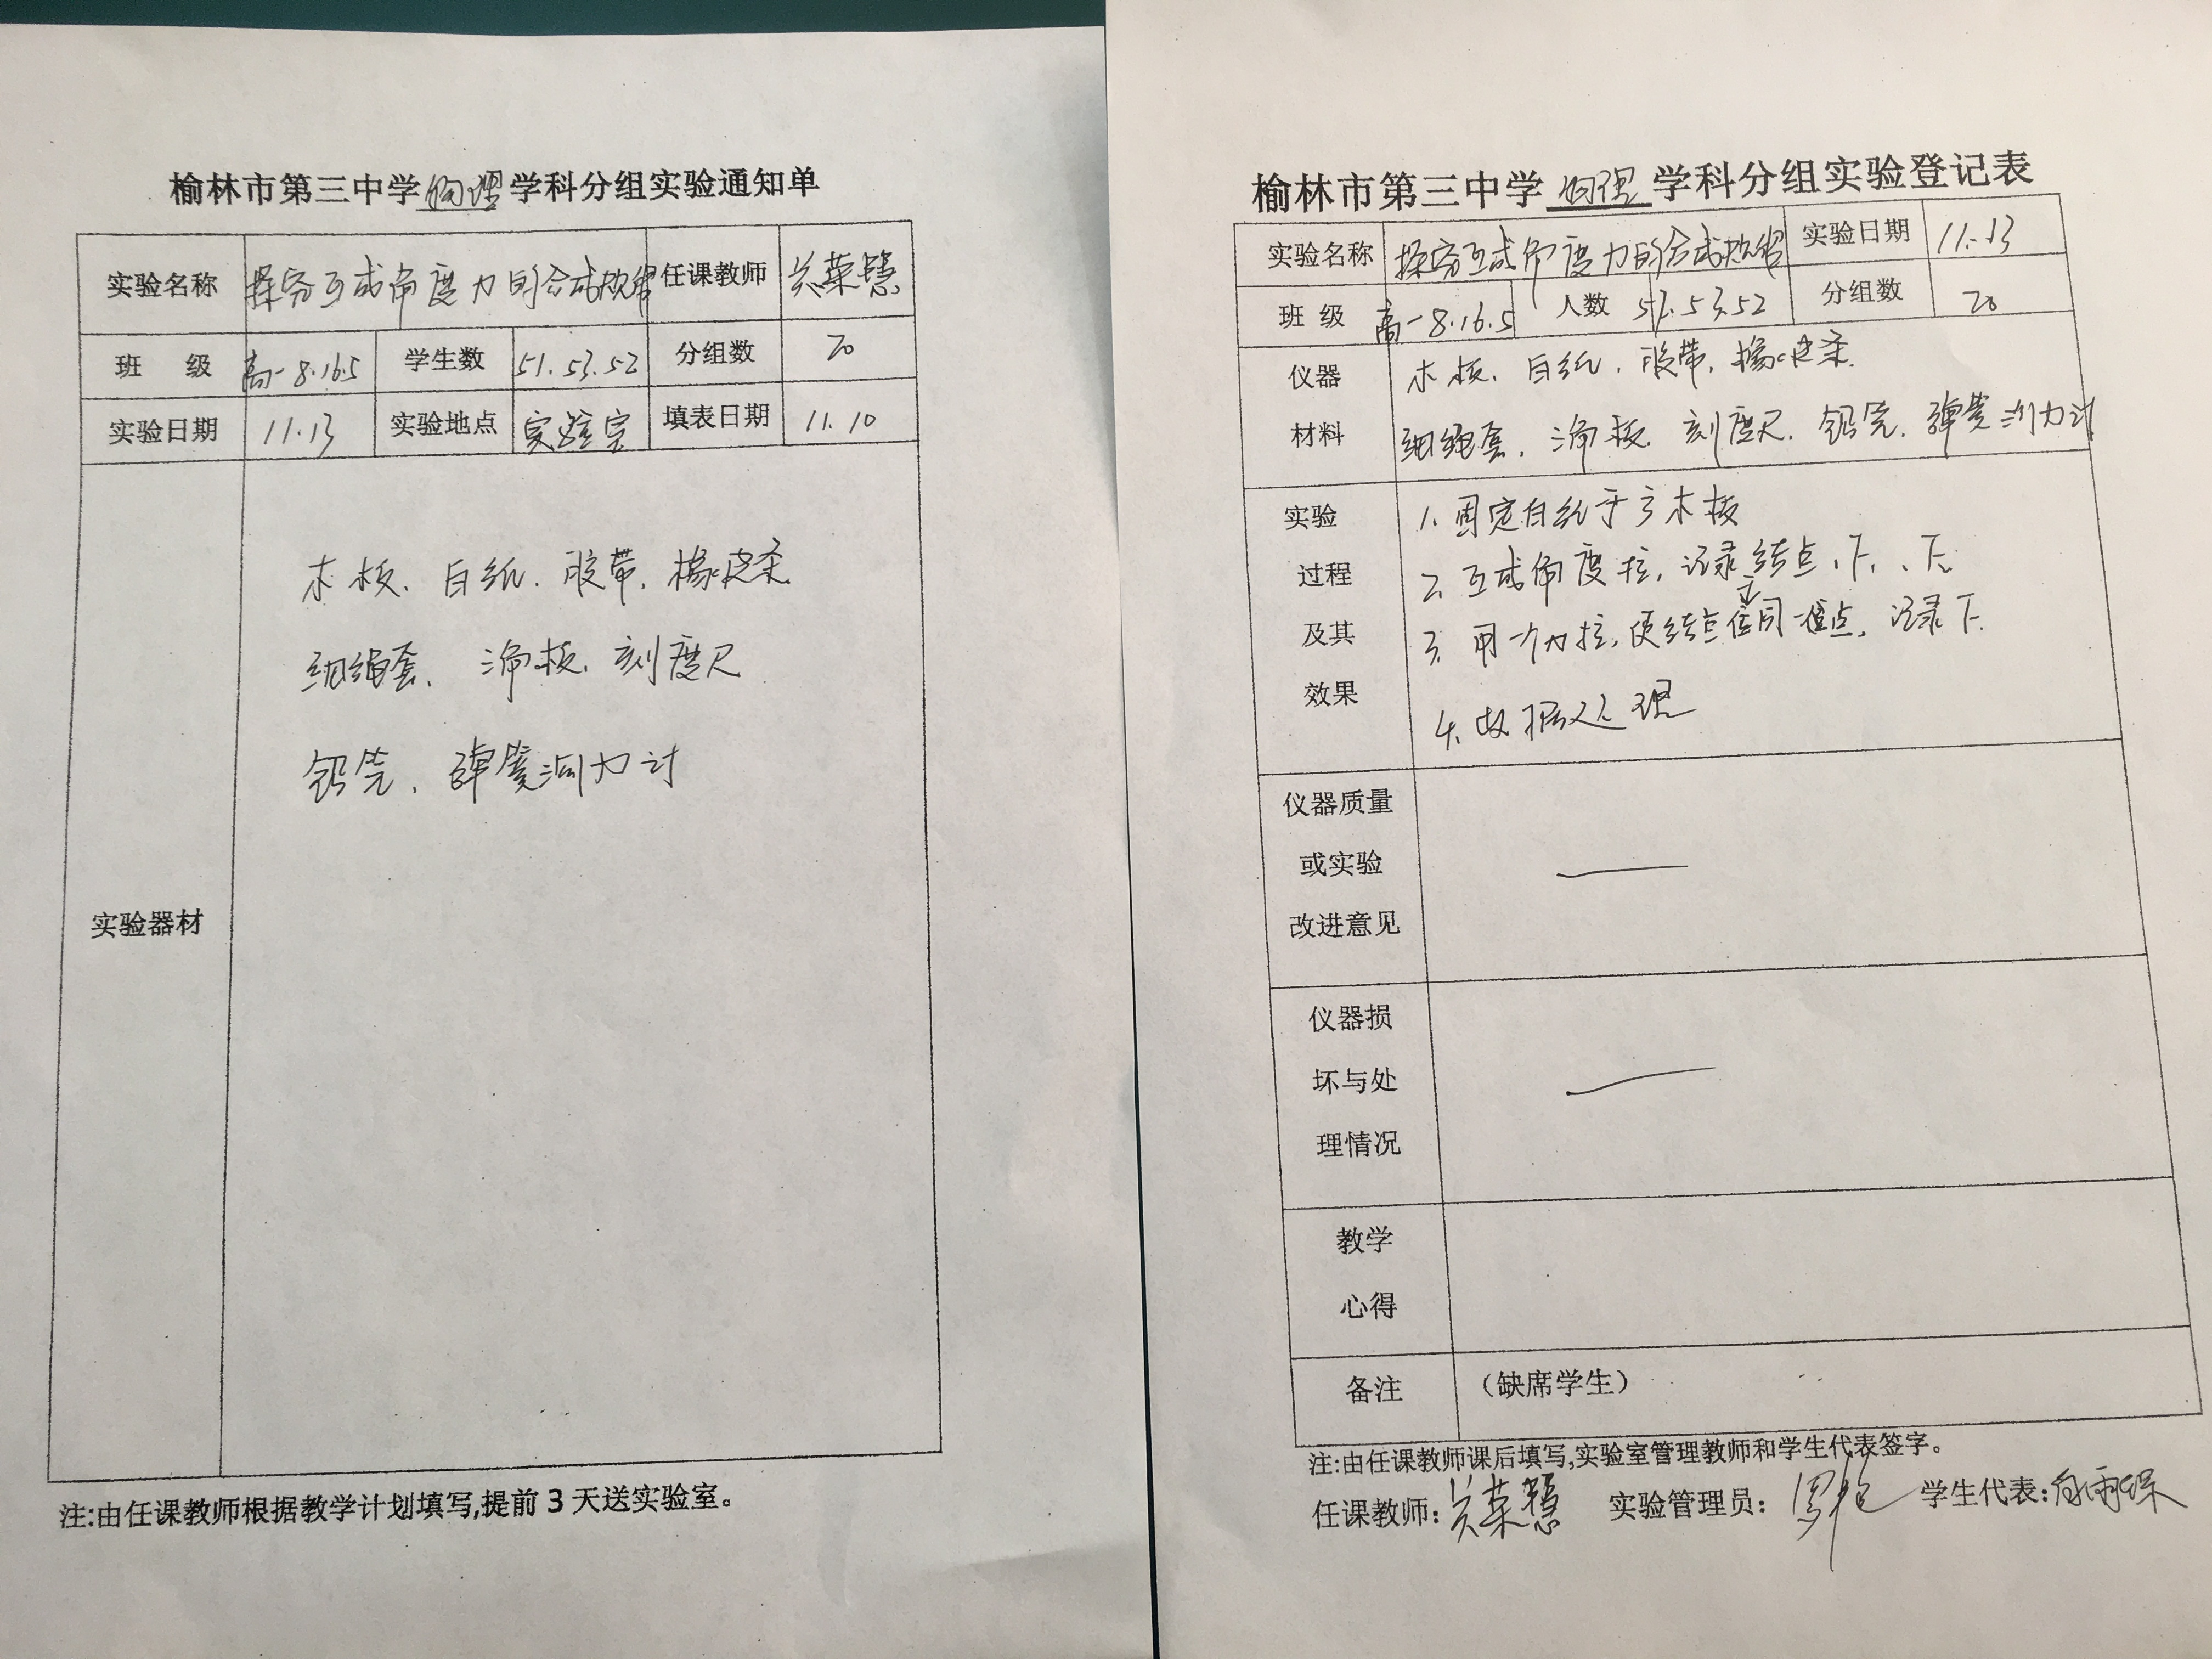 榆林市第三中学物理学科分组实验通知单
实验名称 探究互成角度力的合成规律 任课教师 关荣慧
班 级 高一8.16.5 学生数 51.53.52 分组数 20
实验日期 11.13 实验地点 实验室 填表日期 11.10
实验器材
木板、白纸、胶带、橡皮条
细绳套、三角板、刻度尺
铅笔、弹簧测力计
注:由任课教师根据教学计划填写,提前3天送实验室。
榆林市第三中学物理学科分组实验登记表
实验名称 探究互成角度力的合成规律 实验日期 11.13
班 级 高一8.16.5 人数 51.53.52 分组数 20
仪器材料
木板、白纸、胶带、橡皮条
细绳套、三角板、刻度尺、铅笔、弹簧测力计
实验过程及其效果
1、固定白纸于方木板
2、互成角度拉,记录结点、F₁、F₂
3、用一个力拉,使结点位同一位点,记录F
4、数据处理
仪器质量或实验改进意见 —
仪器损坏与处理情况 —
教学心得
备注 (缺席学生)
注:由任课教师课后填写,实验室管理教师和学生代表签字。
任课教师:关荣慧 实验管理员: 学生代表: